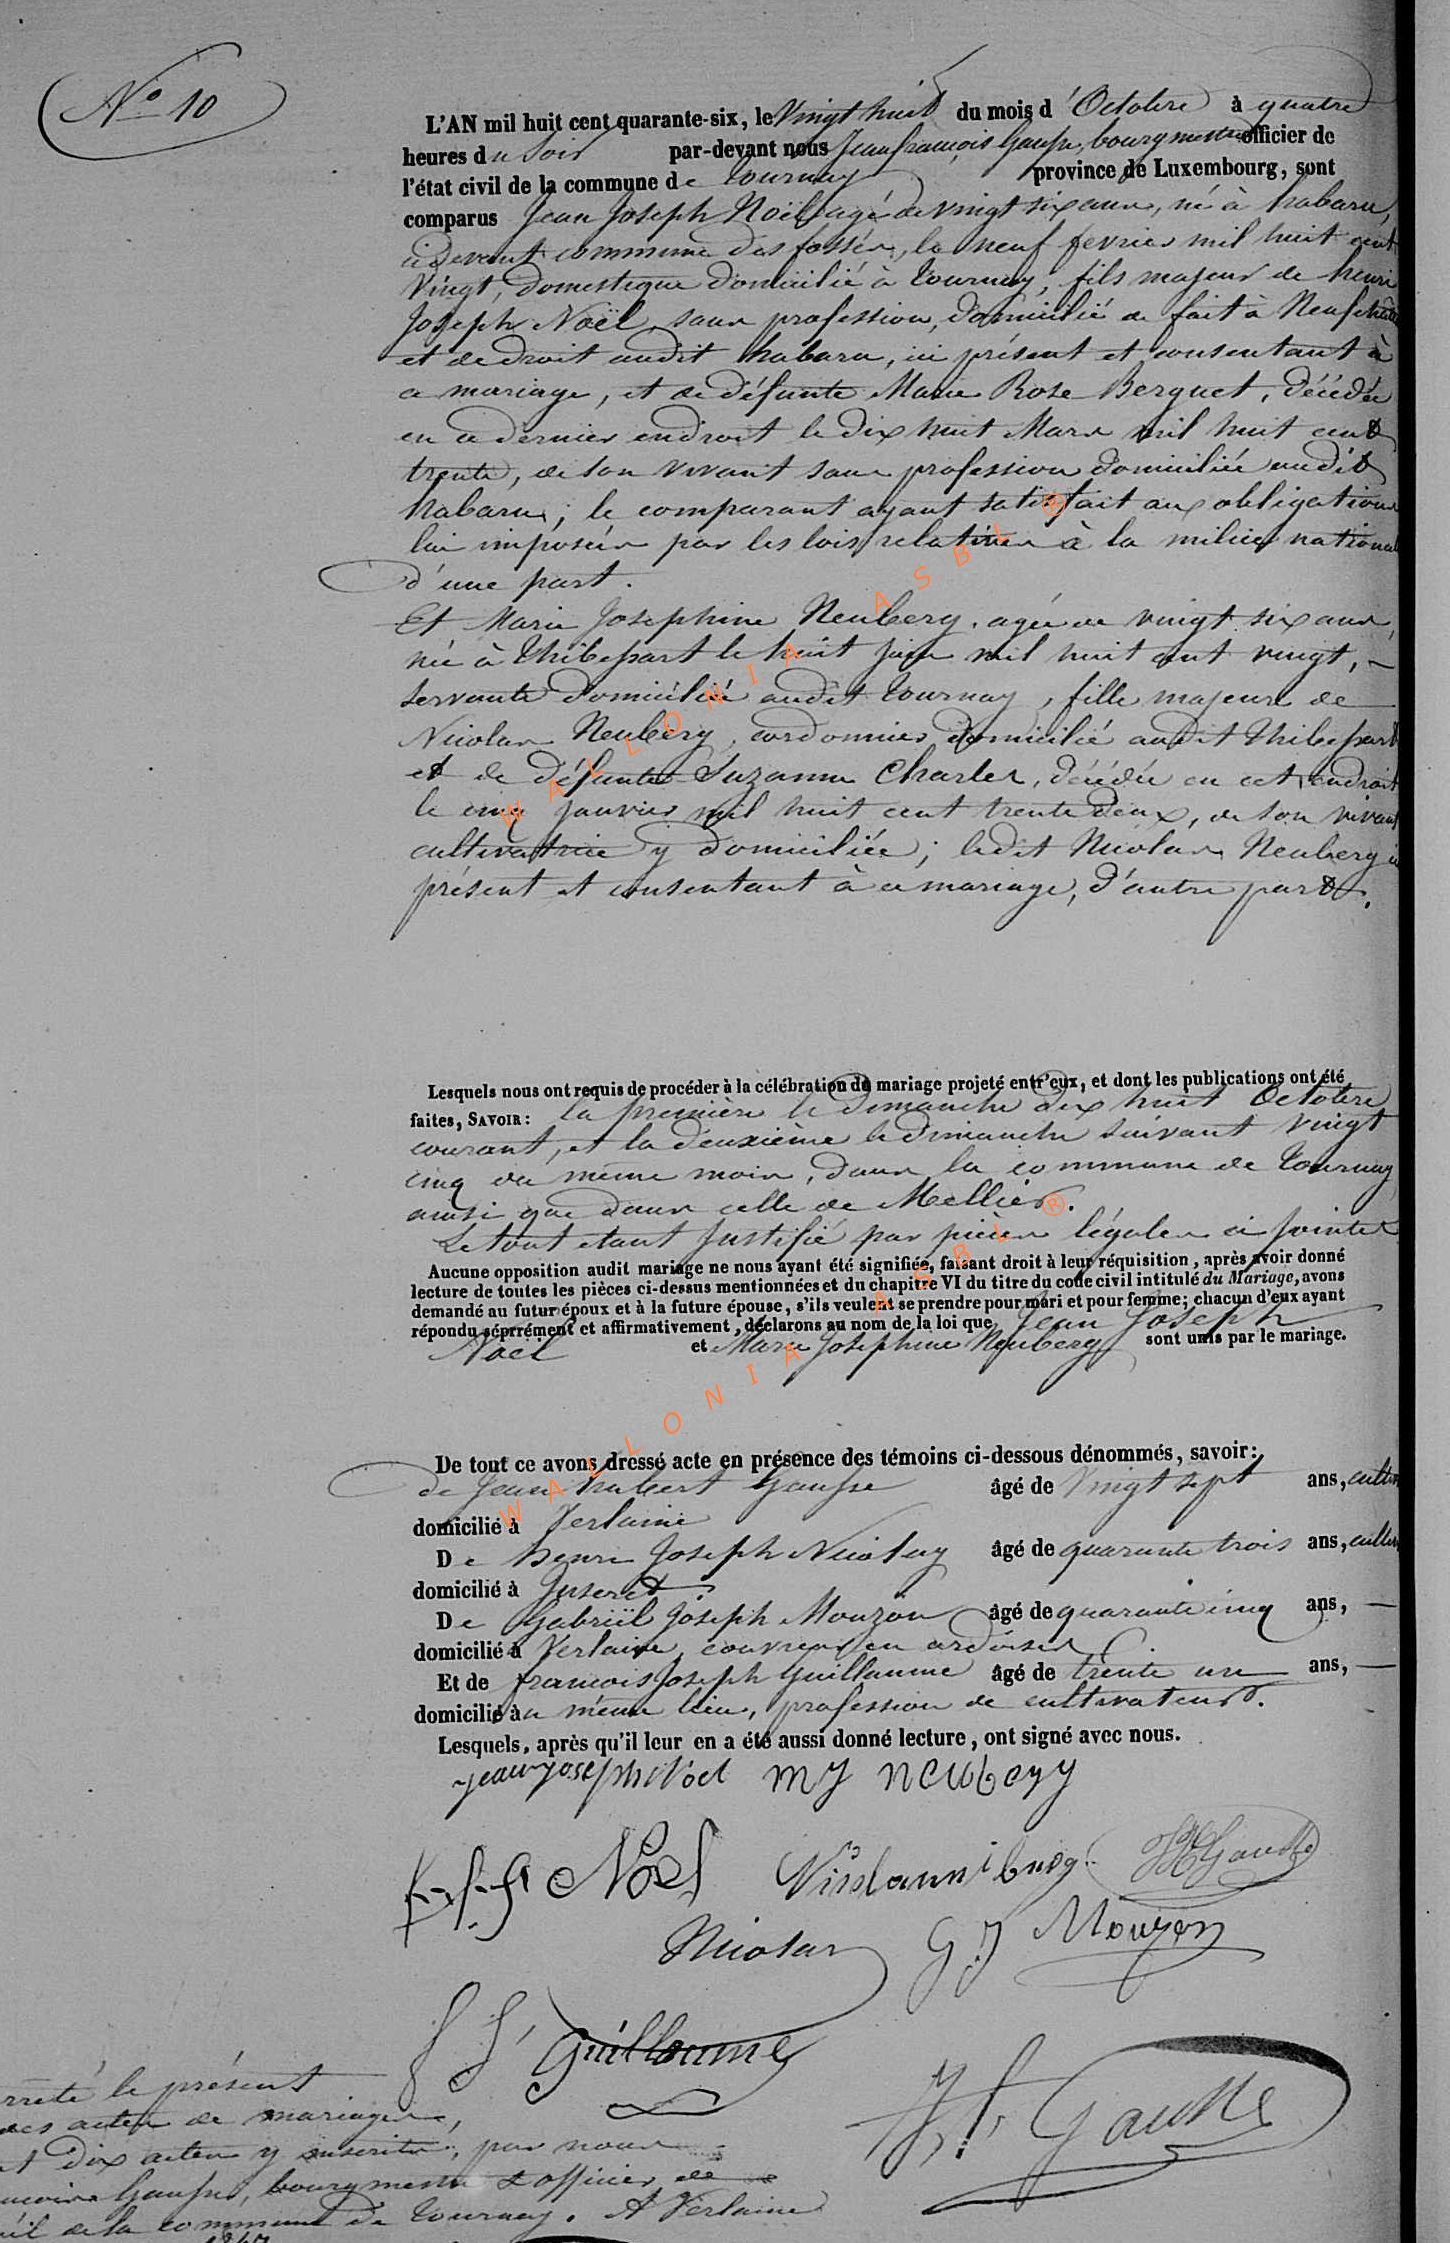 N° 10
L'AN mil huit cent quarante-six, le Vingt huit du mois d'Octobre à quatre
heures du Soir par-devant nous Jean françois Gausse, bourgmestre officier de
l'état civil de la commune de Tournay province de Luxembourg, sont
comparus Jean Joseph Noël agé de vingt six ans, né à habaru,
cidevant commune des fossés, le neuf fevrier mil huit cent
Vingt, domestique domicilié à Tournay, fils majeur de henri
Joseph Noël, sans profession, domicilié de fait à Neufchâteau
et de droit audit habaru, ici présent et consentant à
ce mariage, et de défunte Marie Rose Berguet, décédée
en ce dernier endroit le dix huit Mars mil huit cent
trente, de son vivant sans profession domiciliée audit
habaru; le comparant ayant satisfait aux obligations
lui imposées par les lois relatives à la milice nationale
d'une part.
Et Marie Josephine Neuberg, agée de vingt six ans,
née à Thibessart le huit juin mil huit cent vingt,
servante domiciliée audit Tournay, fille majeure de
Nicolas Neuberg, cordonnier domicilié audit Thibessart
et de défunte Suzanne Charles, décédée en cet endroit
le cinq janvier mil huit cent trente deux, de son vivant
cultivatrice y domiciliée; ledit Nicolas Neuberg ici
présent et consentant à ce mariage, d'autre part.
Lesquels nous ont requis de procéder à la célébration du mariage projeté entr'eux, et dont les publications ont été
faites, SAVOIR: la première le dimanche dix huit Octobre
courant, et la deuxième le dimanche suivant vingt
cinq du même mois, dans la commune de Tournay
ainsi que dans celle de Mellier.
Le tout étant justifié par pièces légales ci jointes
Aucune opposition audit mariage ne nous ayant été signifiée, faisant droit à leur réquisition, après avoir donné
lecture de toutes les pièces ci-dessus mentionnées et du chapitre VI du titre du code civil intitulé du Mariage, avons
demandé au futur époux et à la future épouse, s'ils veulent se prendre pour mari et pour femme; chacun d'eux ayant
répondu séprrément et affirmativement, déclarons au nom de la loi que Jean Joseph
Noël et Marie Josephine Neuberg sont unis par le mariage.
De tout ce avons dressé acte en présence des témoins ci-dessous dénommés, savoir:
de Jean hubert Gausse âgé de Vingt sept ans, cultiv
domicilié à Verlaine
De henri Joseph Nicolay âgé de quarante trois ans, cultiv
domicilié à Juseret.
De Gabriël Joseph Mouzon âgé de quarante cinq ans,
domicilié à Verlaine, couvreur en ardoises.
Et de francois Joseph Guillaume âgé de trente un ans,
domicilié au même lieu, profession de cultivateur.
Lesquels, après qu'il leur en a été aussi donné lecture, ont signé avec nous.
jean joseph Noel MJ Neuberg
Noel JH Gausse
Nicolas GJ Mouzon
FJ Guillaume
J F Gausse
rrêté le présent
des actes de mariages,
t dix actes y inscrits, par nous
ancois Gausse, bourgmestre & officier de
vil de la commune de Tournay. A Verlaine
1847
WALLONIA ASBL ®
WALLONIA ASBL ®